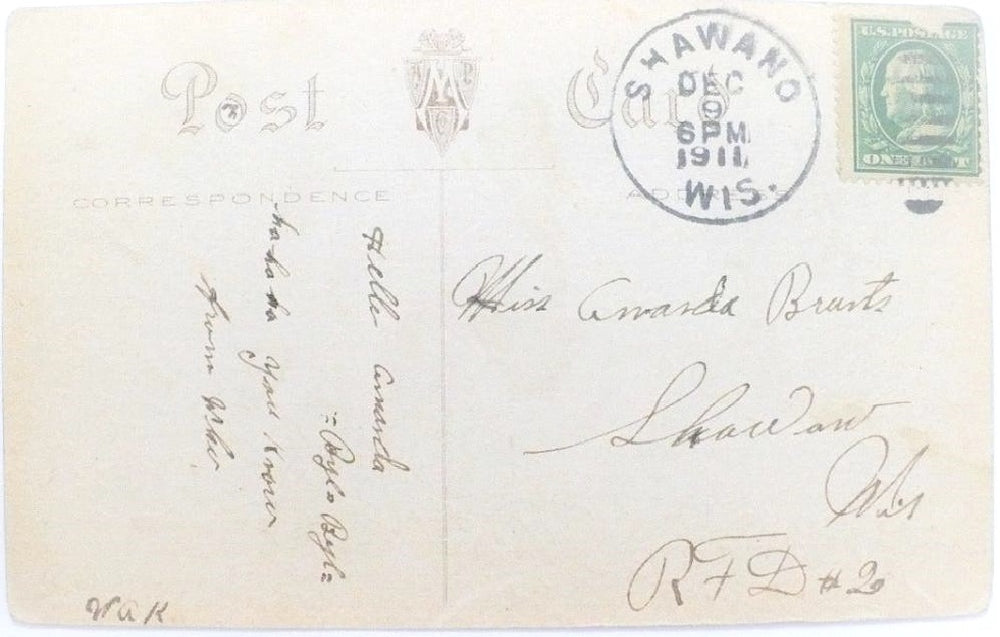 Post Card
CORRESPONDENCE
ADDRESS
SHAWANO
DEC
9
6PM
1911
WIS.
U.S. POSTAGE
ONE CENT
Hello Amanda
=Bylo Bylo=
ha ha ha you know
from Who
W A K
Miss Amanda Brunts
Shawano
Wis
RFD #2